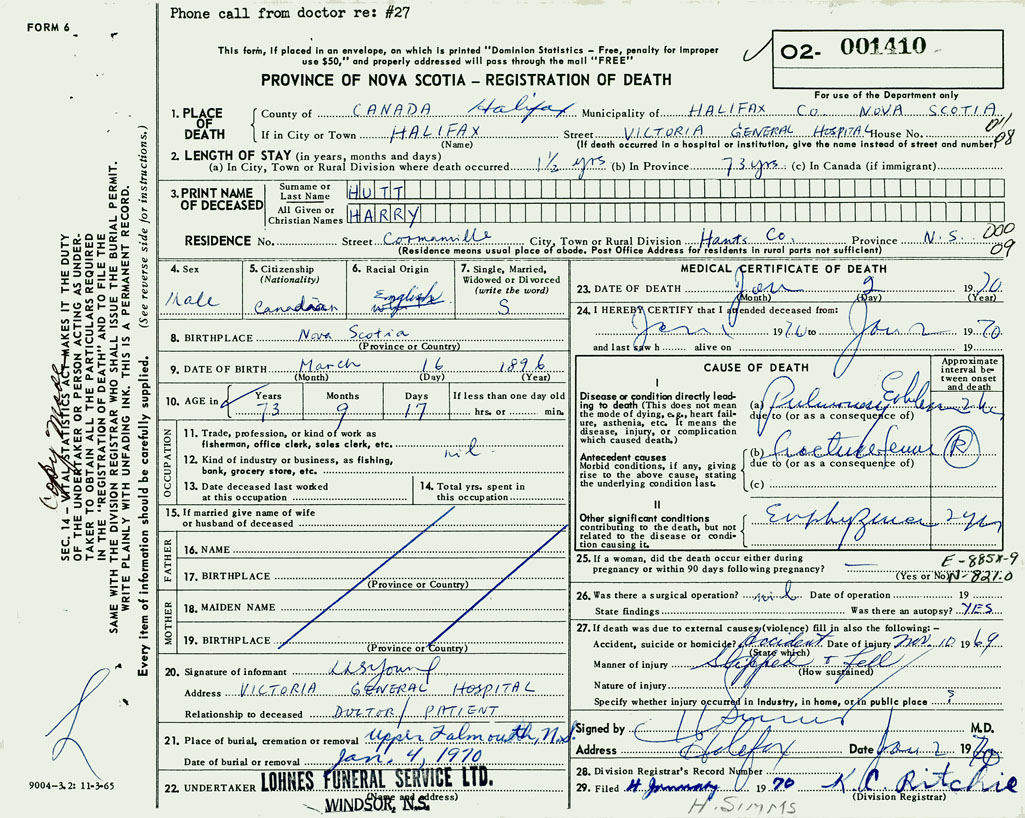 Phone call from doctor re: #27
FORM 6
This form, if placed in an envelope, on which is printed "Dominion Statistics – Free, penalty for improper
use $50," and properly addressed will pass through the mail "FREE"
02- 001410
PROVINCE OF NOVA SCOTIA – REGISTRATION OF DEATH
For use of the Department only
1. PLACE OF DEATH
County of CANADA Halifax Municipality of HALIFAX CO. NOVA SCOTIA
If in City or Town HALIFAX Street VICTORIA GENERAL HOSPITAL House No.
(Name) (If death occurred in a hospital or institution, give the name instead of street and number)
011
08
2. LENGTH OF STAY (in years, months and days)
(a) In City, Town or Rural Division where death occurred 1½ yrs (b) In Province 73 yrs. (c) In Canada (if immigrant)
3. PRINT NAME OF DECEASED
Surname or Last Name HUTT
All Given or Christian Names HARRY
RESIDENCE No. Street City, Town or Rural Division Hants Co. Province N.S.
(Residence means usual place of abode. Post Office Address for residents in rural parts not sufficient)
000
09
4. Sex
Male
5. Citizenship
(Nationality)
Canadian
6. Racial Origin
English
7. Single, Married,
Widowed or Divorced
(write the word)
S
8. BIRTHPLACE Nova Scotia
(Province or Country)
9. DATE OF BIRTH March 16 1896
(Month) (Day) (Year)
10. AGE in
Years Months Days If less than one day old
73 9 17 hrs. or min.
OCCUPATION
11. Trade, profession, or kind of work as
fisherman, office clerk, sales clerk, etc.
nil
12. Kind of industry or business, as fishing,
bank, grocery store, etc.
13. Date deceased last worked
at this occupation
14. Total yrs. spent in
this occupation
15. If married give name of wife
or husband of deceased
FATHER
16. NAME
17. BIRTHPLACE
(Province or Country)
MOTHER
18. MAIDEN NAME
19. BIRTHPLACE
(Province or Country)
20. Signature of informant
Address VICTORIA GENERAL HOSPITAL
Relationship to deceased DOCTOR / PATIENT
21. Place of burial, cremation or removal Upper Falmouth, N.S.
Date of burial or removal Jan. 4, 1970
22. UNDERTAKER LOHNES FUNERAL SERVICE LTD.
(Name and address)
WINDSOR, N.S.
MEDICAL CERTIFICATE OF DEATH
23. DATE OF DEATH Jan 2 1970
(Month) (Day) (Year)
24. I HEREBY CERTIFY that I attended deceased from:
Jan 1 1970 to Jan 2 1970
and last saw h alive on
CAUSE OF DEATH
Approximate
interval be-
tween onset
and death
I
Disease or condition directly lead-
ing to death (This does not mean
the mode of dying, e.g., heart fail-
ure, asthenia, etc. It means the
disease, injury, or complication
which caused death.)
(a) Pulmonary
due to (or as a consequence of)
Antecedent causes
Morbid conditions, if any, giving
rise to the above cause, stating
the underlying condition last.
(b) fracture femur R
due to (or as a consequence of)
(c)
II
Other significant conditions
contributing to the death, but not
related to the disease or condi-
tion causing it.
Emphyzema 2 yrs
25. If a woman, did the death occur either during
pregnancy or within 90 days following pregnancy?
(Yes or No)
E-885X-9
N-821.0
26. Was there a surgical operation? nil Date of operation 19
State findings Was there an autopsy? YES
27. If death was due to external causes (violence) fill in also the following: –
Accident, suicide or homicide? accident Date of injury Nov. 10 1969
(State which)
Manner of injury Slipped & fell
(How sustained)
Nature of injury
Specify whether injury occurred in Industry, in home, or in public place ?
Signed by M.D.
Address Halifax Date Jan 2 1970
28. Division Registrar's Record Number
29. Filed 4 January 1970 K. C. Ritchie
(Division Registrar)
H. SIMMS
SEC. 14 – VITAL STATISTICS ACT MAKES IT THE DUTY
OF THE UNDERTAKER OR PERSON ACTING AS UNDER-
TAKER TO OBTAIN ALL THE PARTICULARS REQUIRED
IN THE "REGISTRATION OF DEATH" AND TO FILE THE
SAME WITH THE DIVISION REGISTRAR WHO SHALL ISSUE THE BURIAL PERMIT.
WRITE PLAINLY WITH UNFADING INK. THIS IS A PERMANENT RECORD.
Every item of information should be carefully supplied. (See reverse side for instructions.)
9004–3.2: 11-3-65